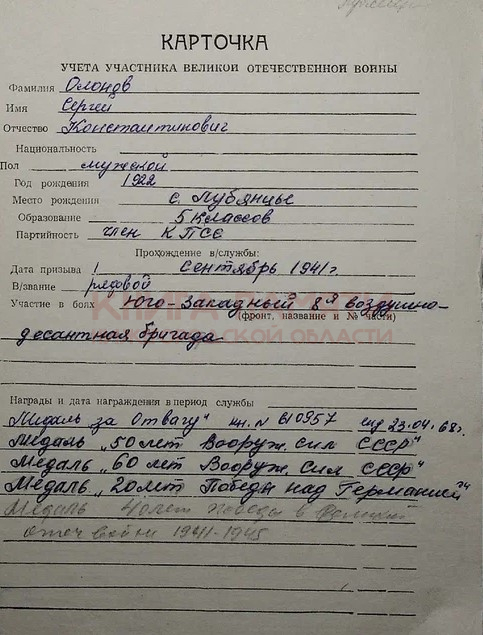 КАРТОЧКА
УЧЕТА УЧАСТНИКА ВЕЛИКОЙ ОТЕЧЕСТВЕННОЙ ВОЙНЫ
Фамилия Олонцов
Имя Сергей
Отчество Константинович
Национальность
Пол мужской
Год рождения 1922
Место рождения с. Лубянцы
Образование 5 классов
Партийность член КПСС
Прохождение в/службы:
Дата призыва сентябрь 1941 г.
В/звание рядовой
Участие в боях Юго-Западный 8я воздушно-
(фронт, название и № части)
десантная бригада
Награды и дата награждения в период службы
Медаль за Отвагу" № 610957 23.04.68г.
Медаль „50 лет Вооруж. Сил СССР"
Медаль „60 лет Вооруж. Сил СССР"
Медаль „20 лет Победы над Германией"
Медаль 40 лет победы в Великой
отеч войны 1941-1945